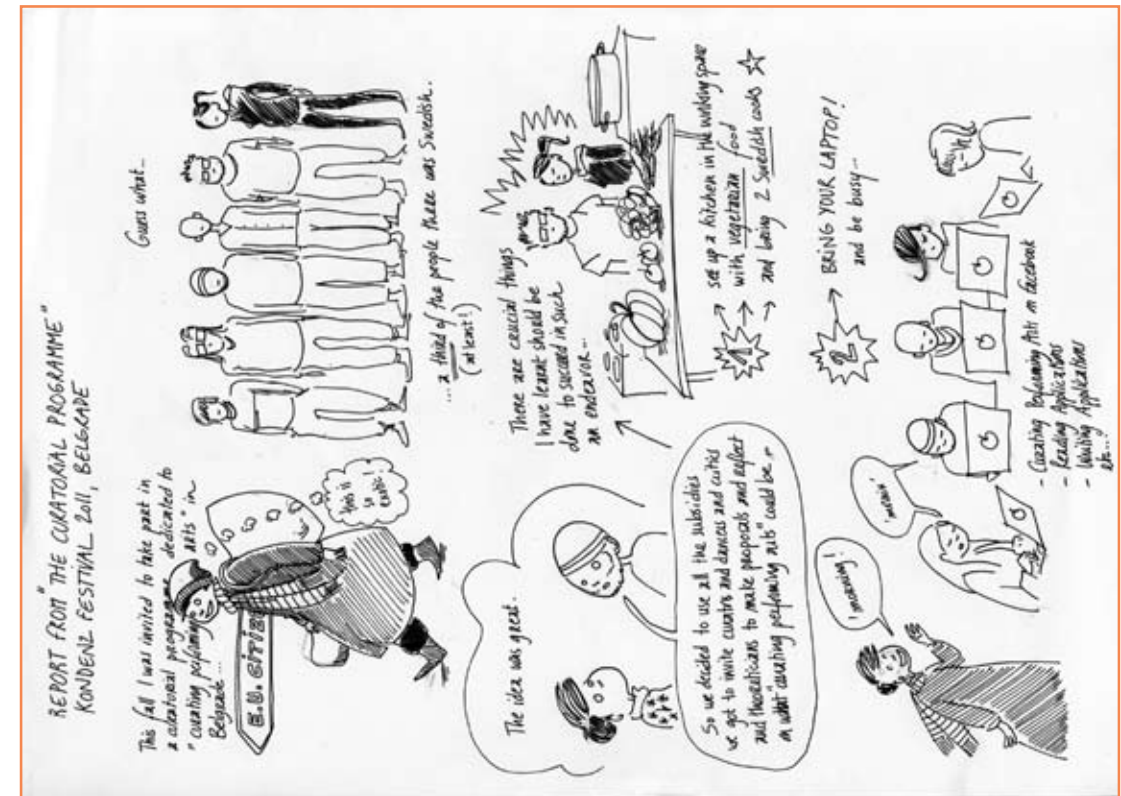 REPORT FROM "THE CURATORIAL PROGRAMME"
KONDENZ FESTIVAL 2011, BELGRADE
This fall I was invited to take part in
a curatorial programme dedicated to
"curating performing arts" in
Belgrade...
E.U. CITIZE
this is
so
exotic!
Guess what...
...a third of the people there was Swedish.
(at least!)
The idea was great.
So we decided to use all the subsidies
we got to invite curators and dancers and critics
and theoreticians to make proposals and reflect
on what "curating performing arts" could be.
There are crucial things
I have learnt should be
done to succeed in such
an endeavor...
1
set up a kitchen in the working space
with vegetarian food
and bring 2 Swedish cooks
'morning!
'mornin'
2
BRING YOUR LAPTOP!
and be busy...
- Curating Performing Arts on facebook
- Reading Applications
- Writing Applications
etc...